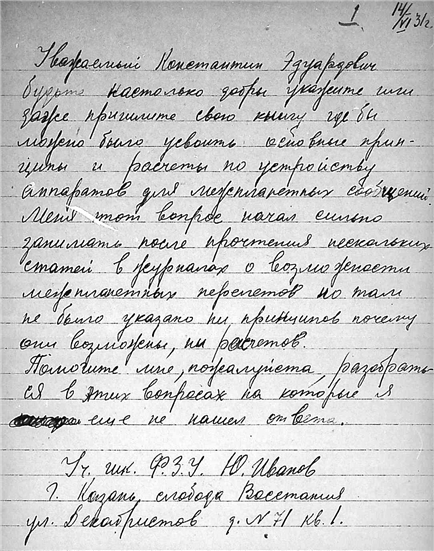 1 14/VI 31г.
Уважаемый Константин Эдуардович
будьте настолько добры укажите или
даже пришлите свою книгу где бы
можно было усвоить основные прин-
ципы и расчеты по устройству
аппаратов для межпланетных сообщений.
Меня этот вопрос начал сильно
занимать после прочтения нескольких
статей в журналах о возможности
межпланетных перелетов но там
не было указано ни принципов почему
они возможны, ни расчетов.
Помогите мне, пожалуйста, разобрать-
ся в этих вопросах на которые я
еще не нашел ответа.
Уч. шк. Ф.З.У. Ю. Иванов
г. Казань, слобода Восстания
ул. Декабристов д. N 71 кв. 1.